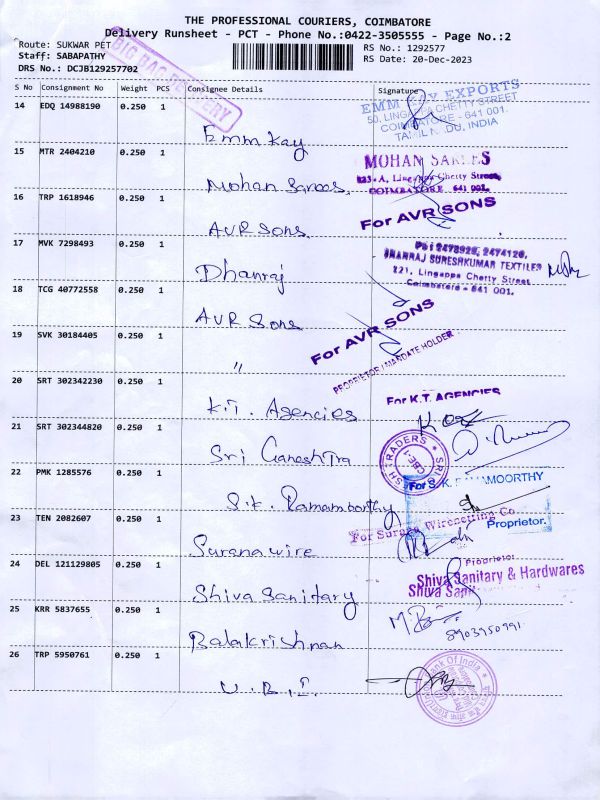 THE PROFESSIONAL COURIERS, COIMBATORE
Delivery Runsheet - PCT - Phone No.:0422-3505555 - Page No.:2
Route: SUKWAR PET
RS No.: 1292577
Staff: SABAPATHY
RS Date: 20-Dec-2023
DRS No.: DCJB129257702
BIG BAG DELIVERY
S No Consignment No Weight PCS Consignee Details Signature
14 EDQ 14988190 0.250 1 Emm kay
EMM KAY EXPORTS
50, LINGAPPA CHETTY STREET
COIMBATORE - 641 001.
TAMIL NADU, INDIA
15 MTR 2404210 0.250 1 Mohan Sarees.
MOHAN SAREES
123-A, Lingappa Chetty Street,
COIMBATORE 641 001.
16 TRP 1618946 0.250 1 AVR SONS
For AVR SONS
17 MVK 7298493 0.250 1 Dhanraj
Ph: 2478926, 2474126,
DHANRAJ SURESHKUMAR TEXTILES
221, Lingappa Chetty Street
Coimbatore - 641 001.
18 TCG 40772558 0.250 1 AVR Sons
For AVR SONS
19 SVK 30184405 0.250 1 "
PROPRIETOR / MANDATE HOLDER
20 SRT 302342230 0.250 1 K.T. Agencies
For K.T. AGENCIES
21 SRT 302344820 0.250 1 Sri Ganesh Tra
TRADERS
CBE-1
22 PMK 1285576 0.250 1 S.K. Ramamoorthy
For S.K. RAMAMOORTHY
Proprietor.
23 TEN 2082607 0.250 1 Surana wire
For Surana Wirenetting Co
Proprietor
24 DEL 121129805 0.250 1 Shiva Sanitary
Shiva Sanitary & Hardwares
25 KRR 5837655 0.250 1 Balakrishnan
8903950991
26 TRP 5950761 0.250 1 U.B.I.
Bank Of India